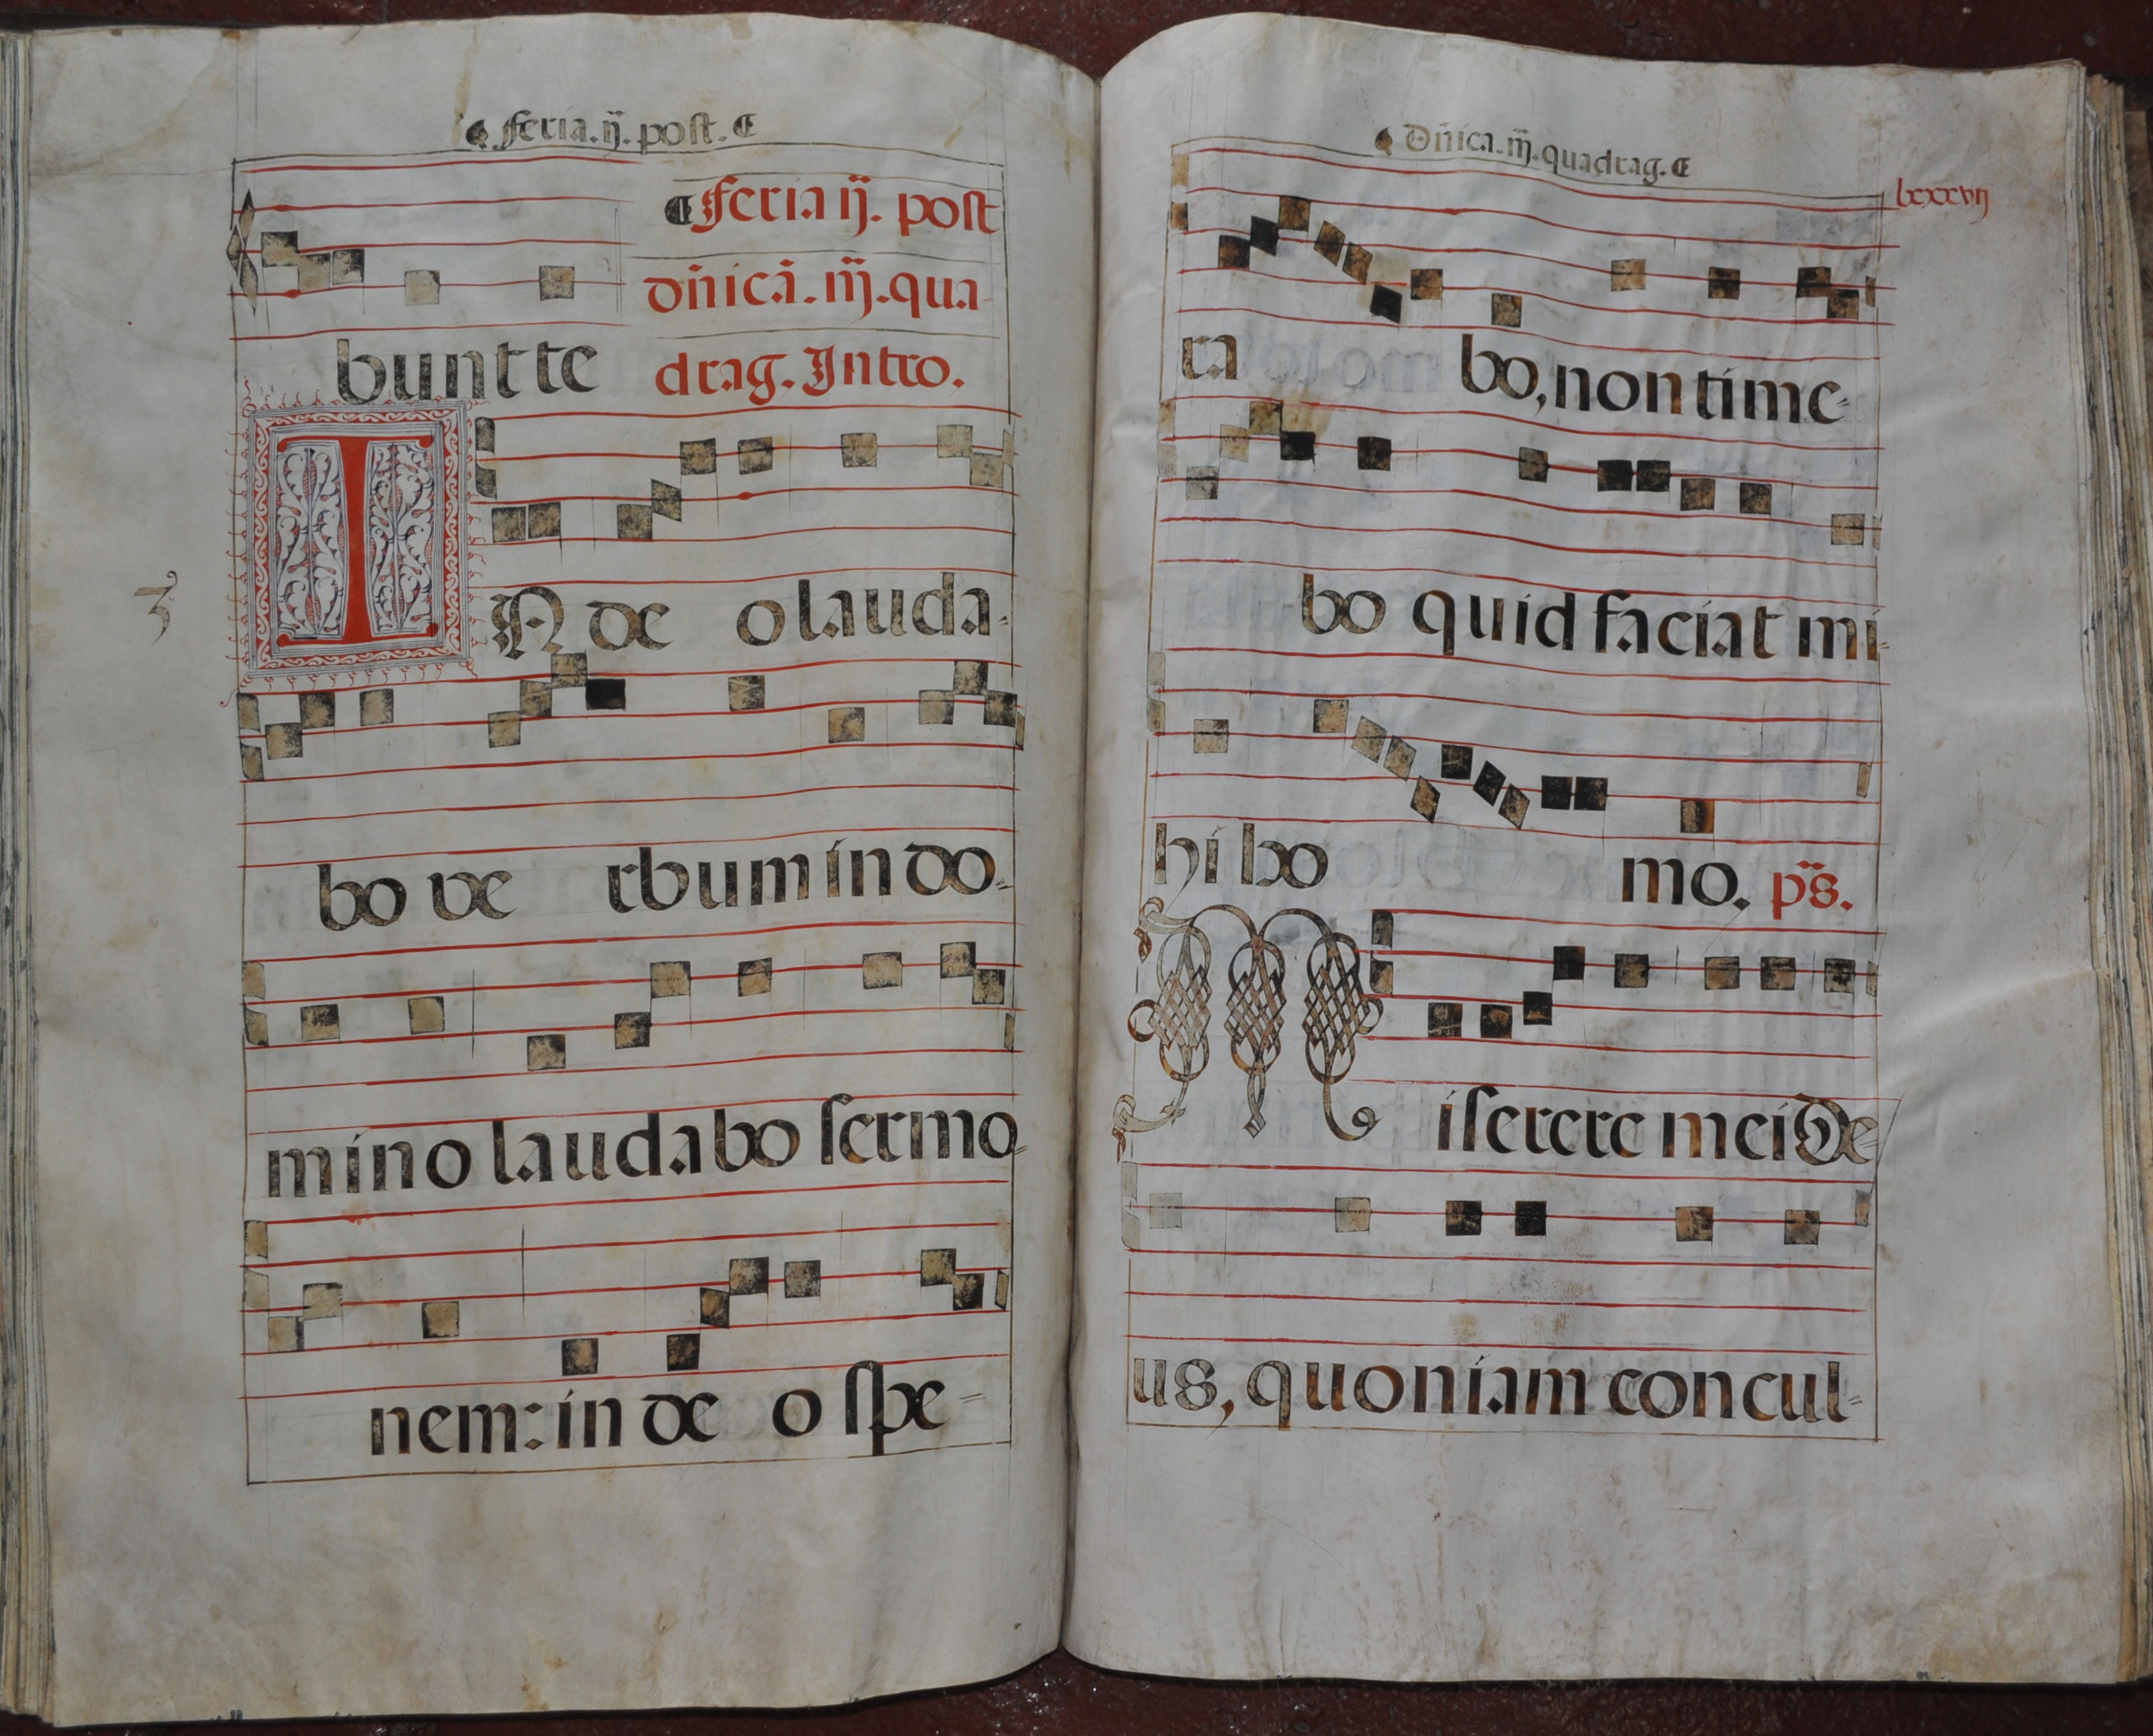 feria.ij.post.
feria ij. post
dñicā.iij.qua
bunt te
drag. Intro.
IN de o lauda-
3
bo ve rbum in do-
mino laudabo sermo-
nem: in de o spe-
Dñica.iij.quadrag.
lxxxvij
ra bo, non time-
bo quid faciat mi-
hi ho mo. ps.
Miserere mei De-
us, quoniam concul-